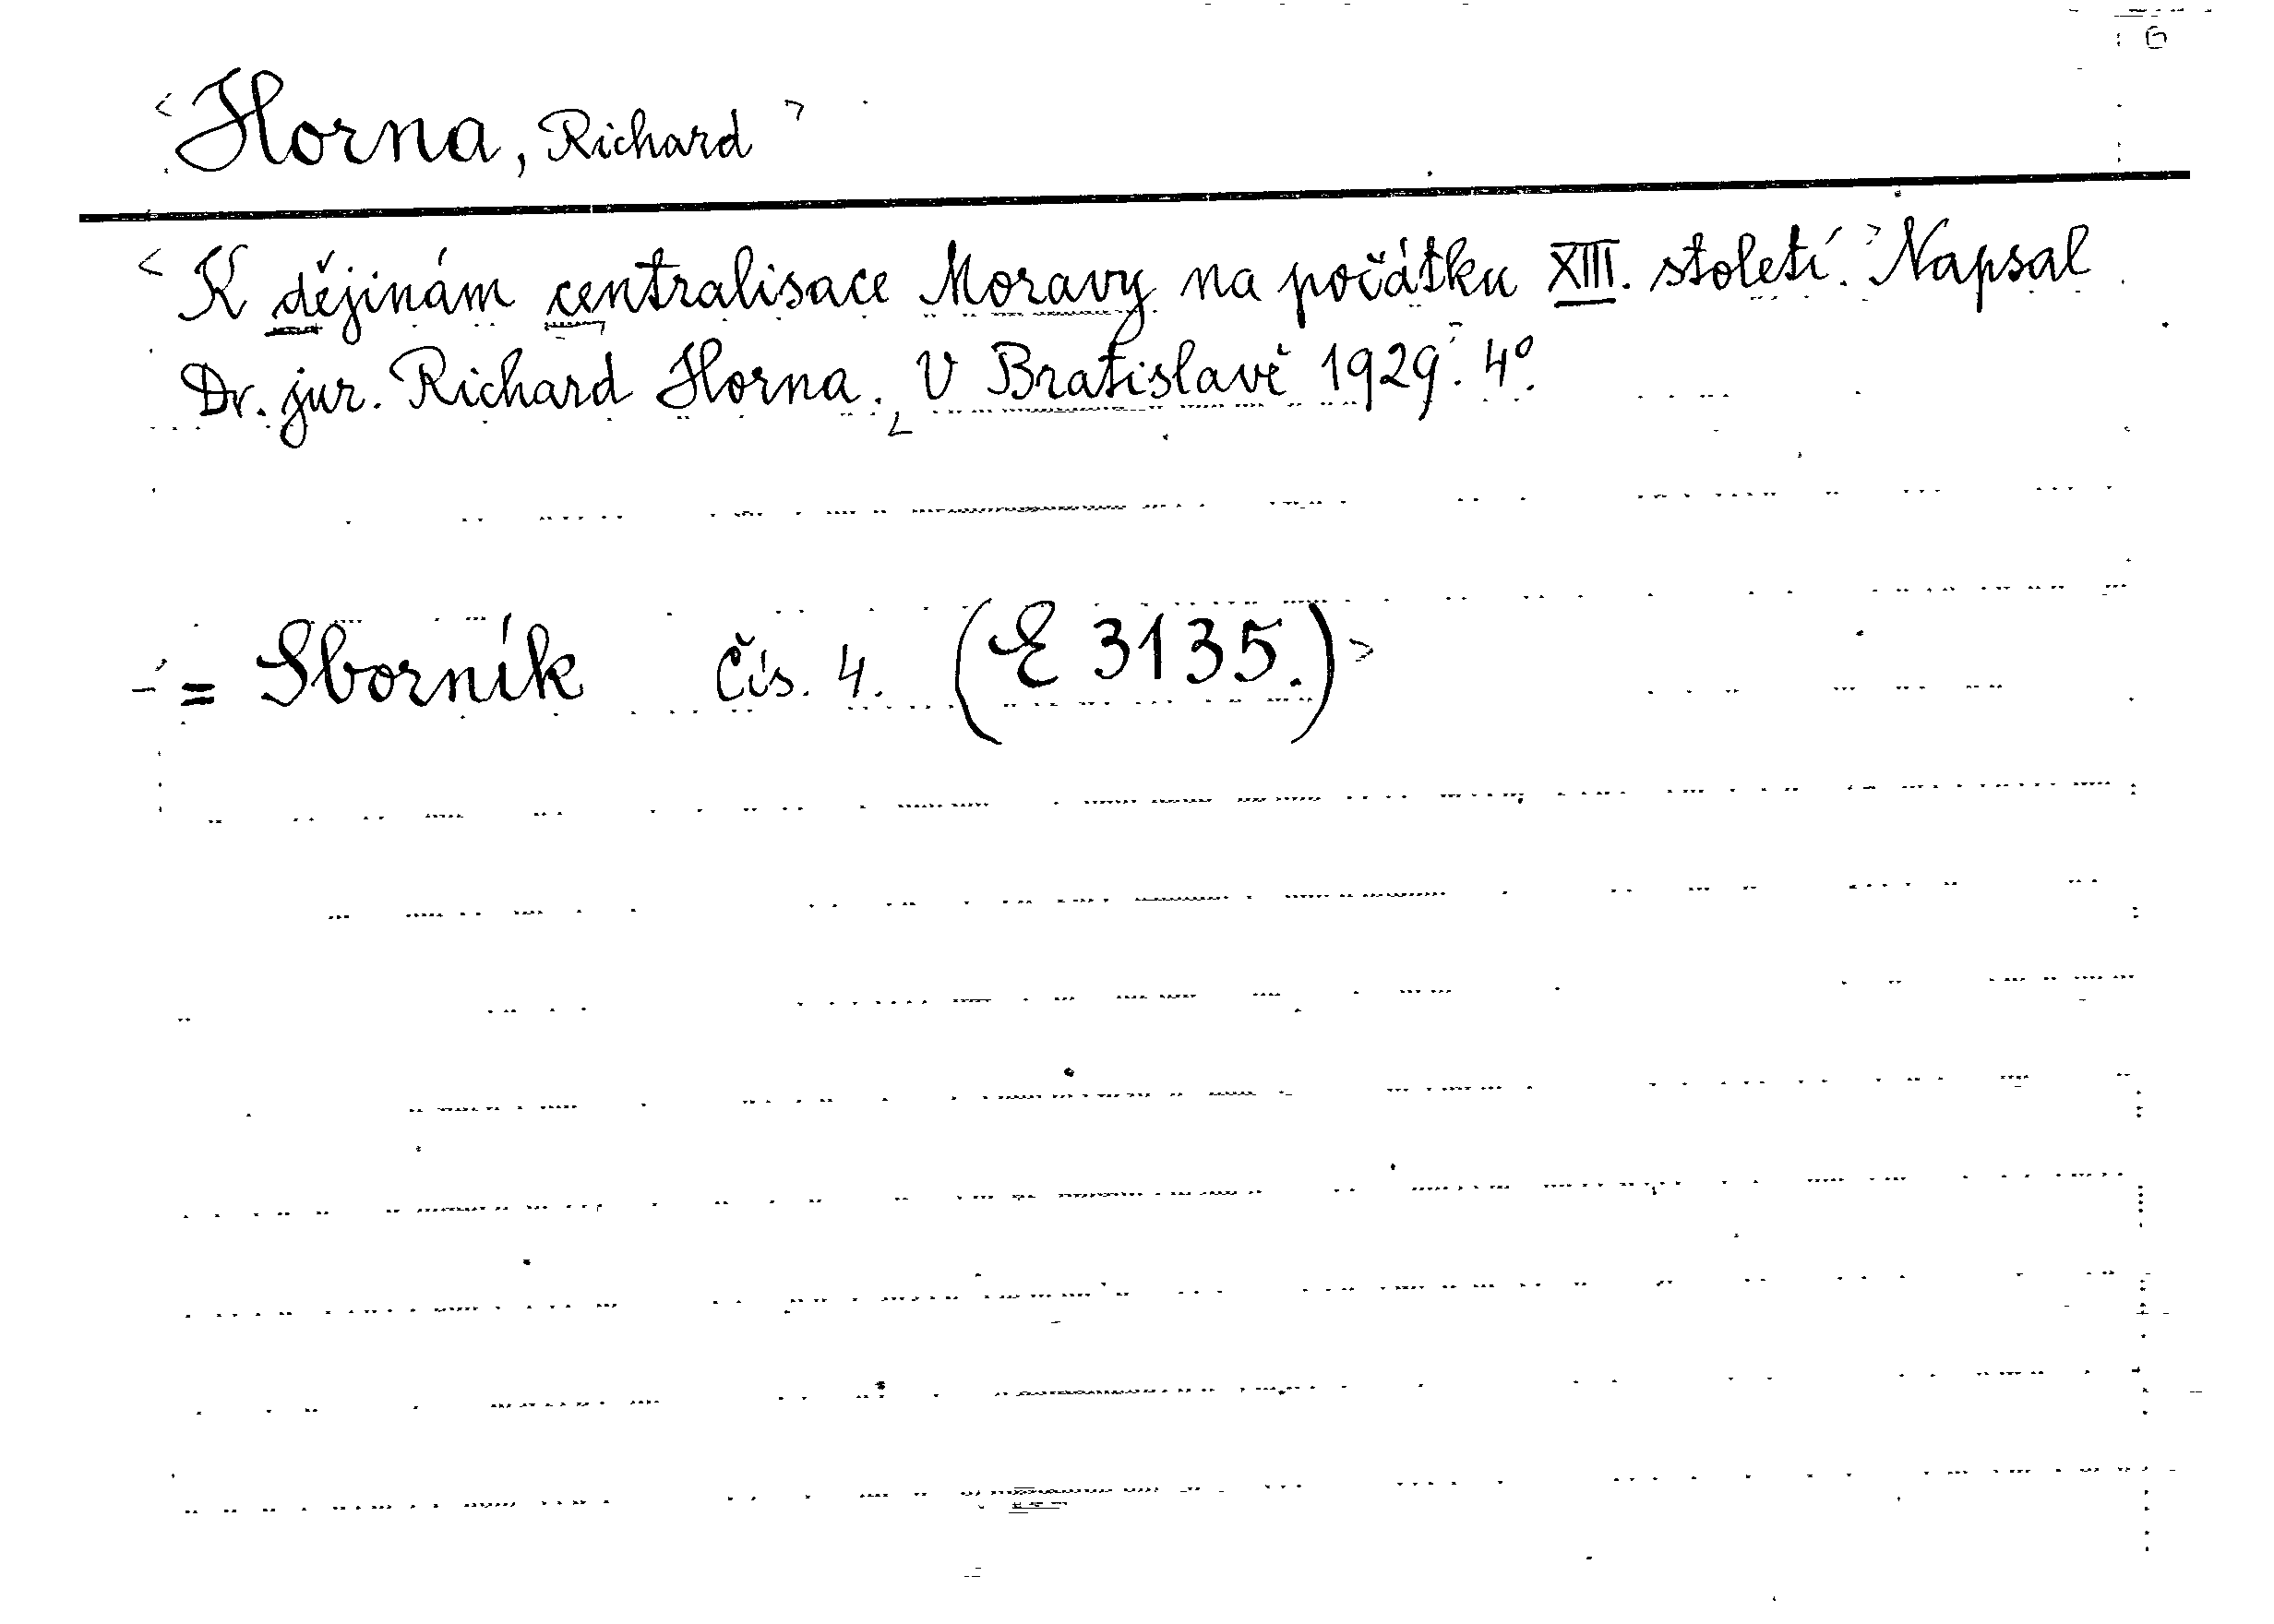 Horna, Richard
K dějinám centralisace Moravy na počátku XIII. století. Napsal
Dr. jur. Richard Horna. V Bratislavě 1929. 4°.
= Sborník čís. 4. (E 3135.)